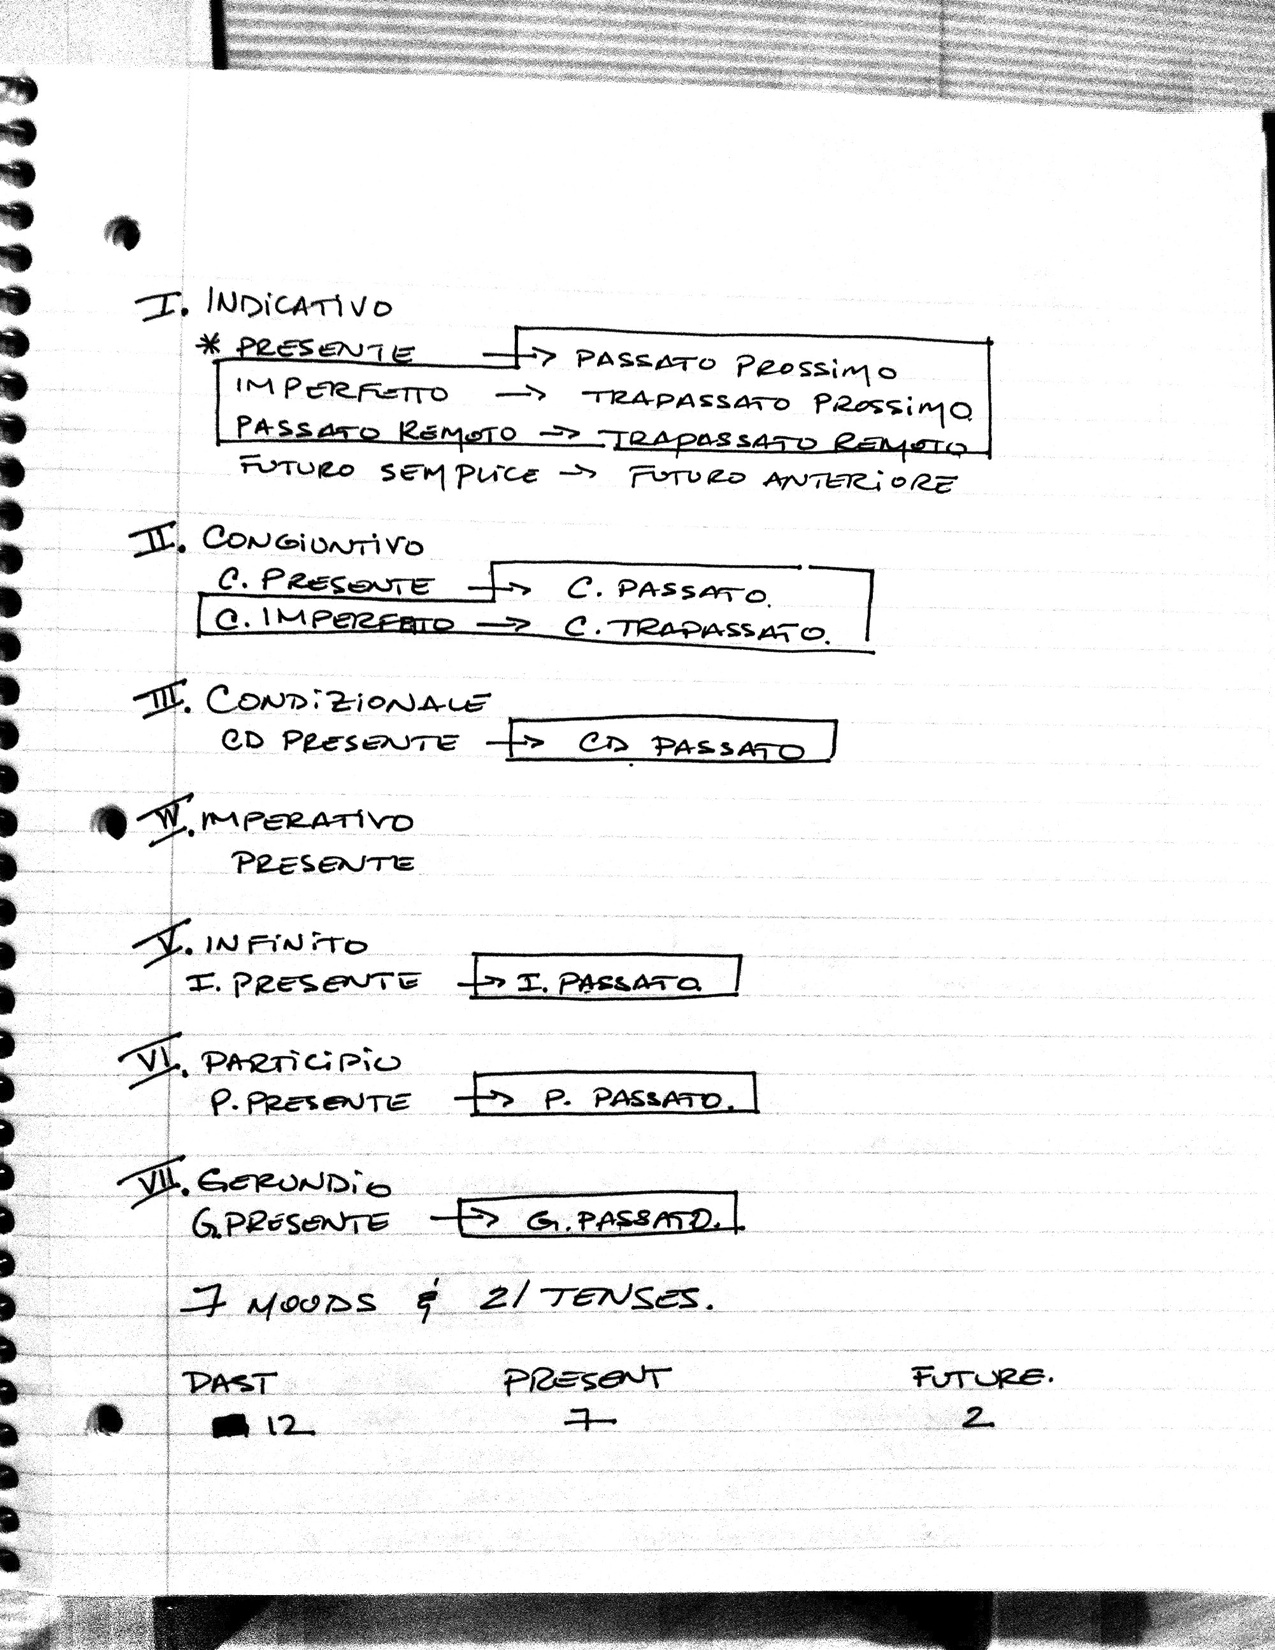 I. INDICATIVO
* PRESENTE → PASSATO PROSSIMO
IMPERFETTO → TRAPASSATO PROSSIMO
PASSATO REMOTO → TRAPASSATO REMOTO
FUTURO SEMPLICE → FUTURO ANTERIORE
II. CONGIUNTIVO
C. PRESENTE → C. PASSATO.
C. IMPERFETTO → C. TRAPASSATO.
III. CONDIZIONALE
CD PRESENTE → CD PASSATO
IV. IMPERATIVO
PRESENTE
V. INFINITO
I. PRESENTE → I. PASSATO.
VI. PARTICIPIO
P. PRESENTE → P. PASSATO.
VII. GERUNDIO
G. PRESENTE → G. PASSATO.
7 MOODS & 21 TENSES.
PAST PRESENT FUTURE.
12 7 2